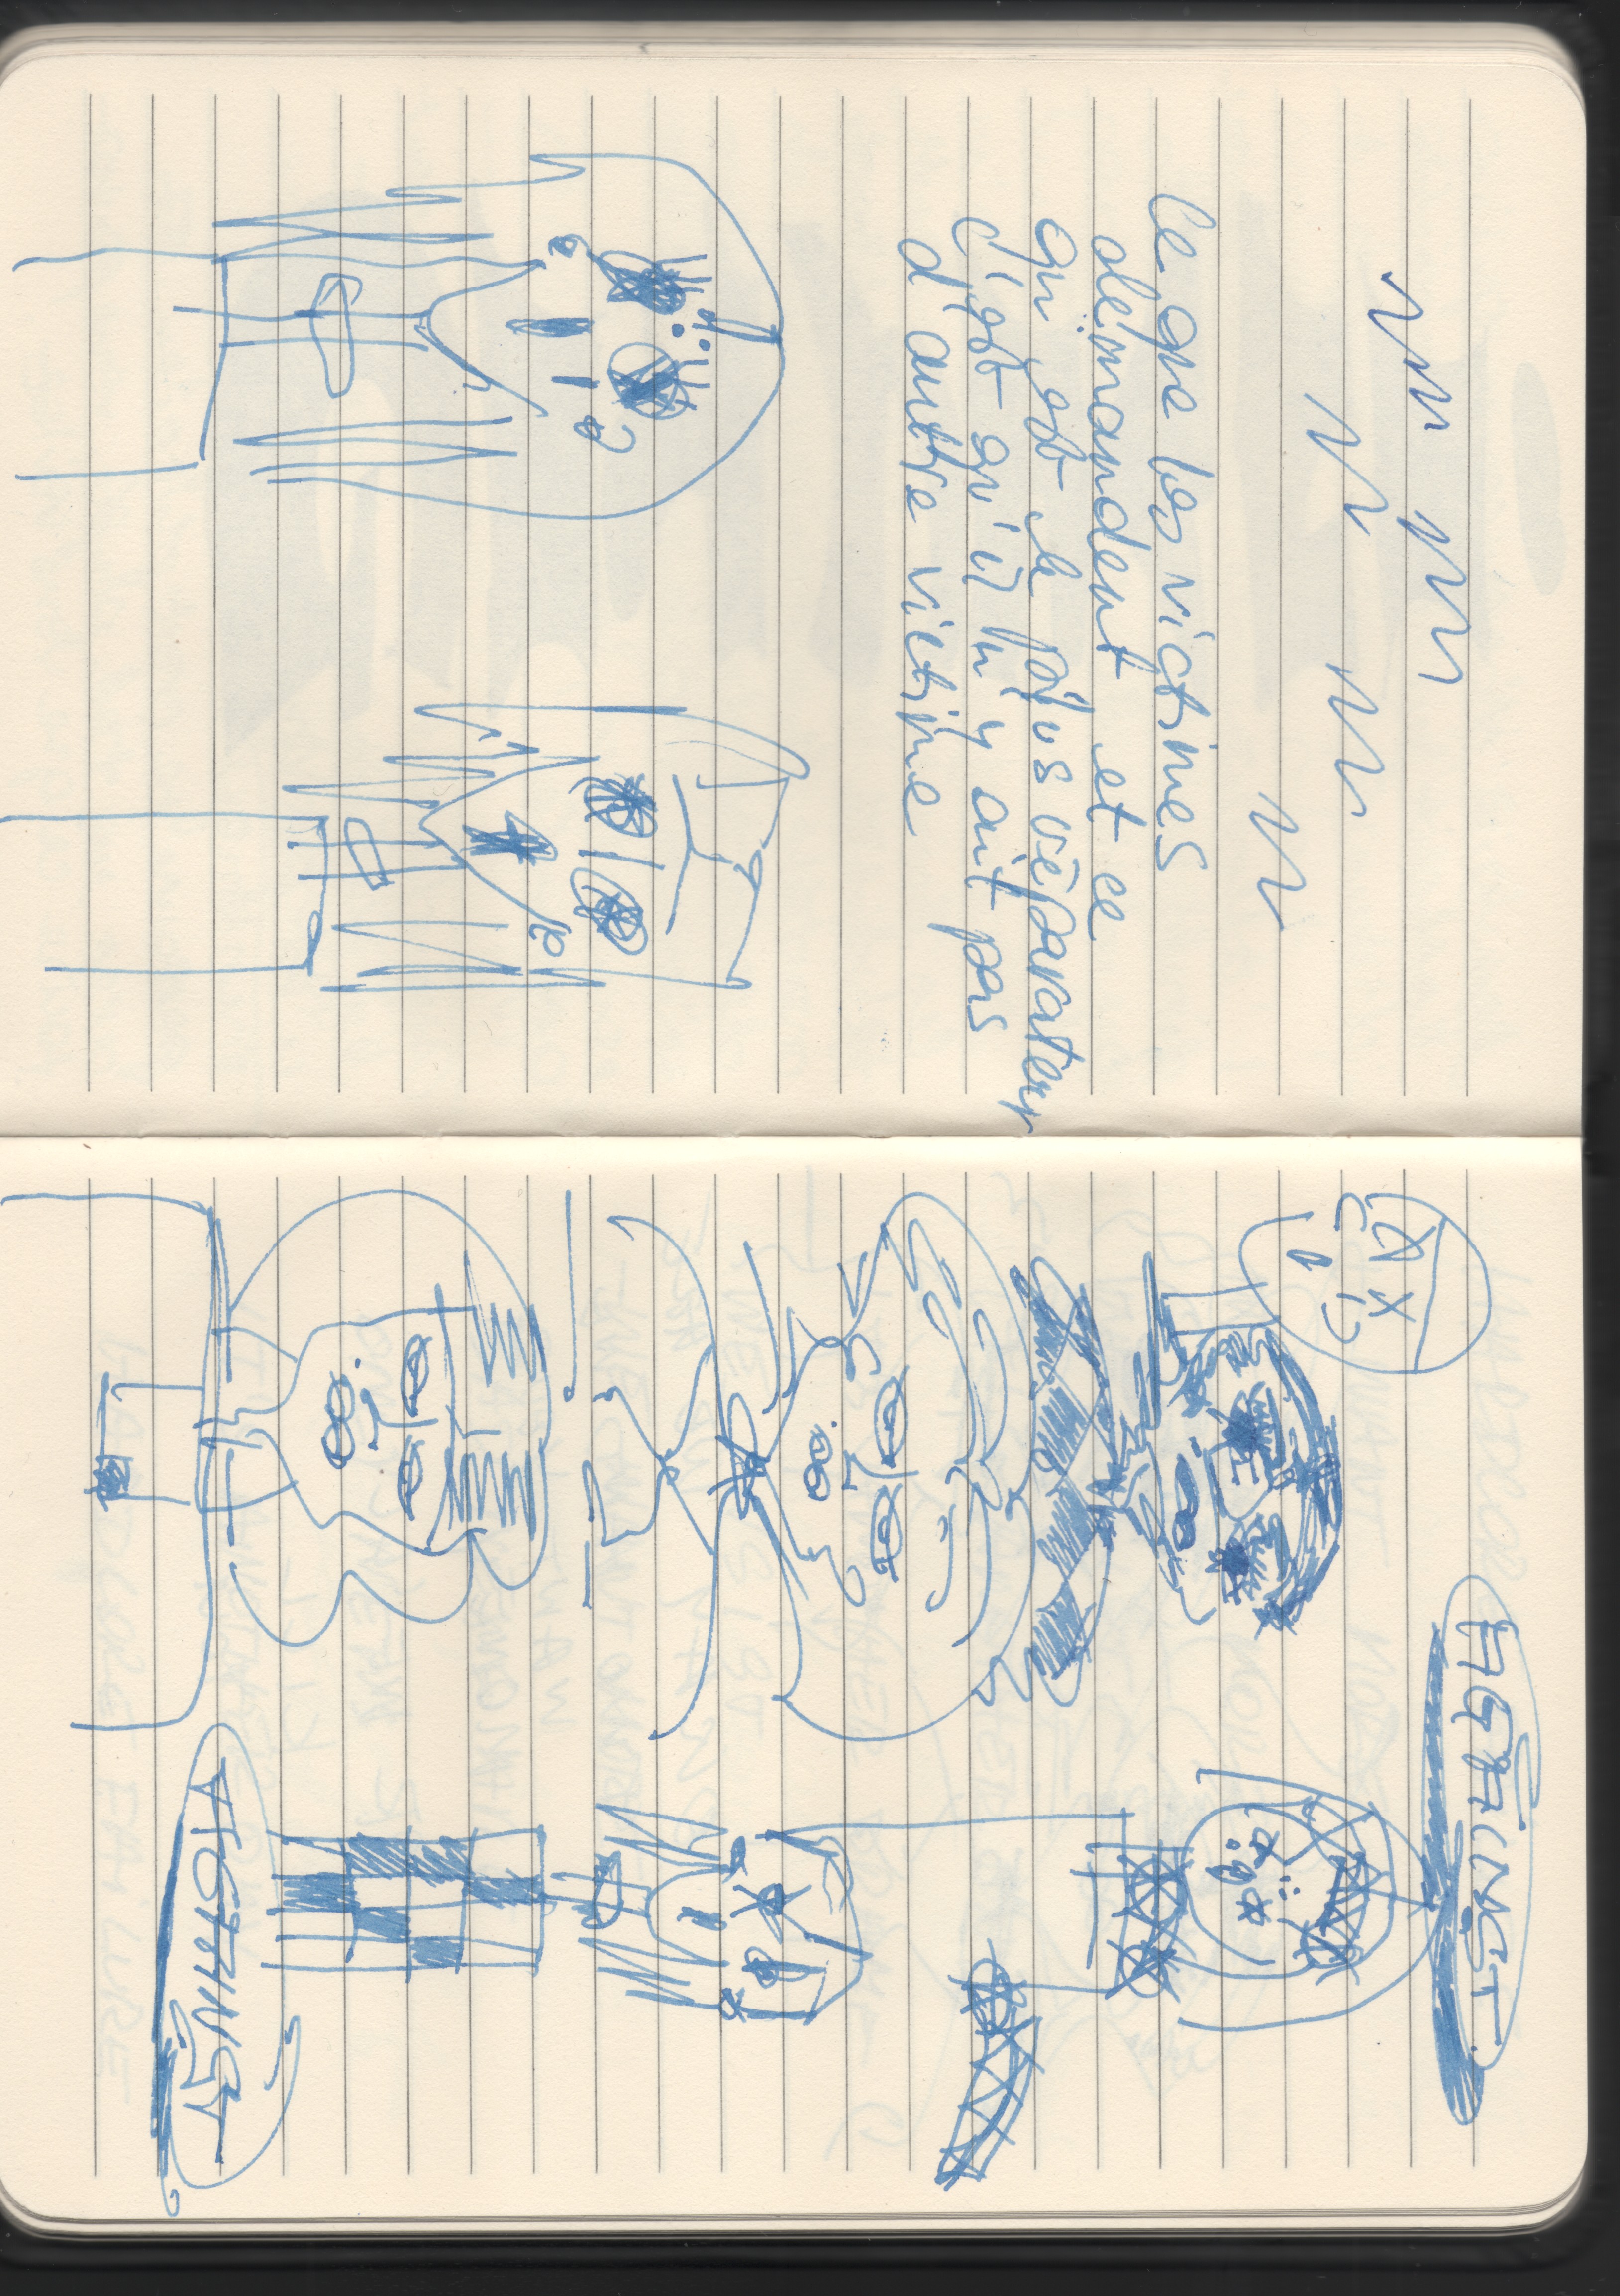 Ce que les victimes
demandent et ce
qui est le plus réparateur
c'est qu'il n'y ait pas
d'autre victime
AGAINST